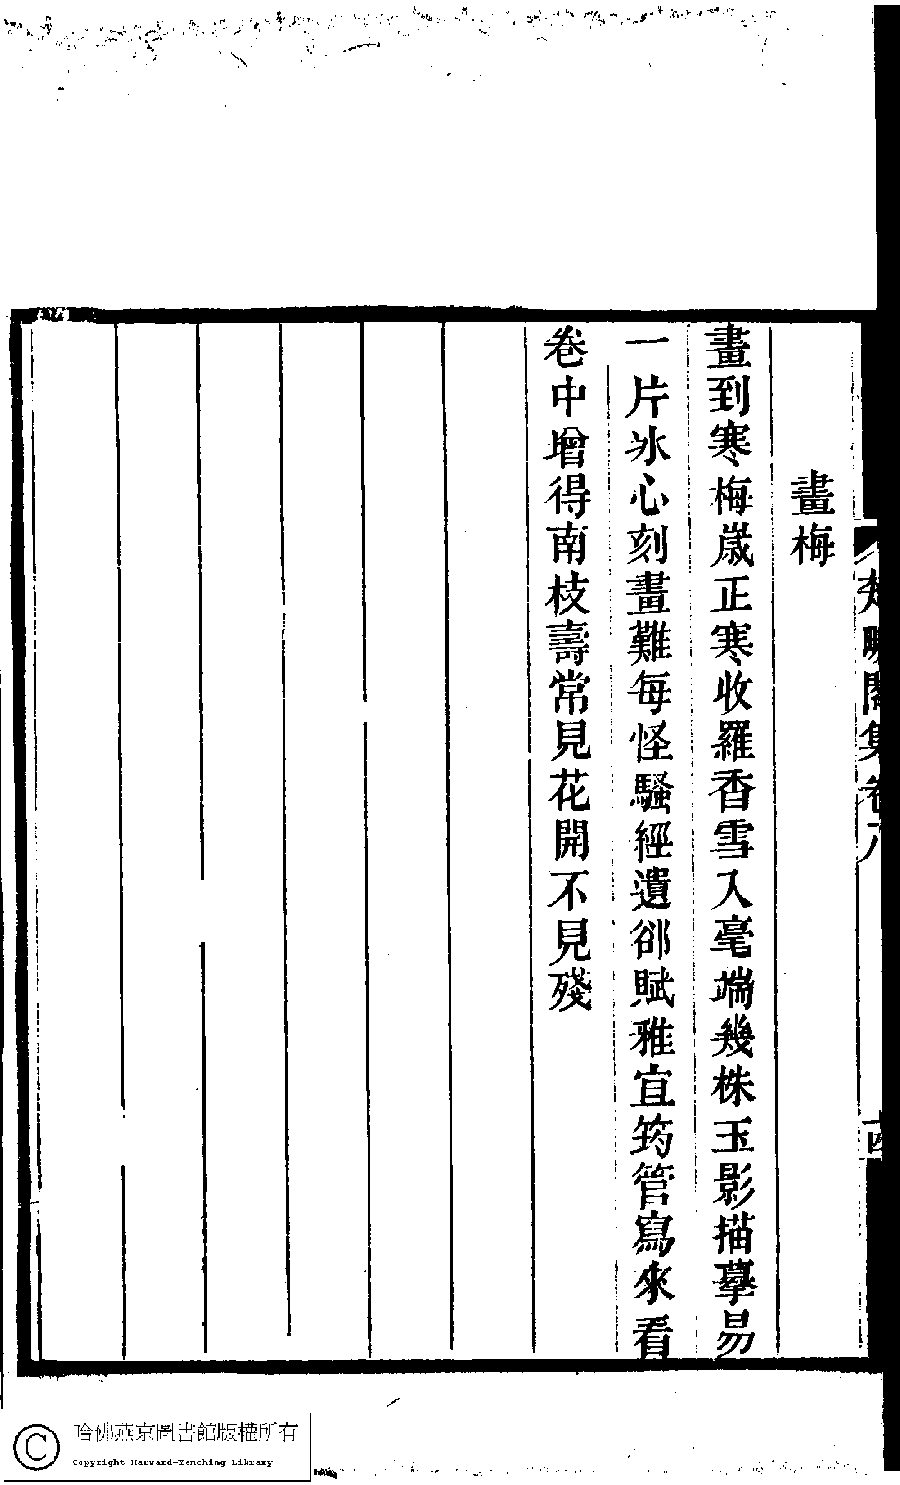 畫梅
畫到寒梅歲正寒收羅香雪入毫端幾株玉影描摹易
一片冰心刻畫難每怪騷經遺郤賦雅宜筠管寫來看
卷中增得南枝壽常見花開不見殘
閣集卷六
十四
哈佛燕京圖書館版權所有
Copyright Harvard-Yenching Library